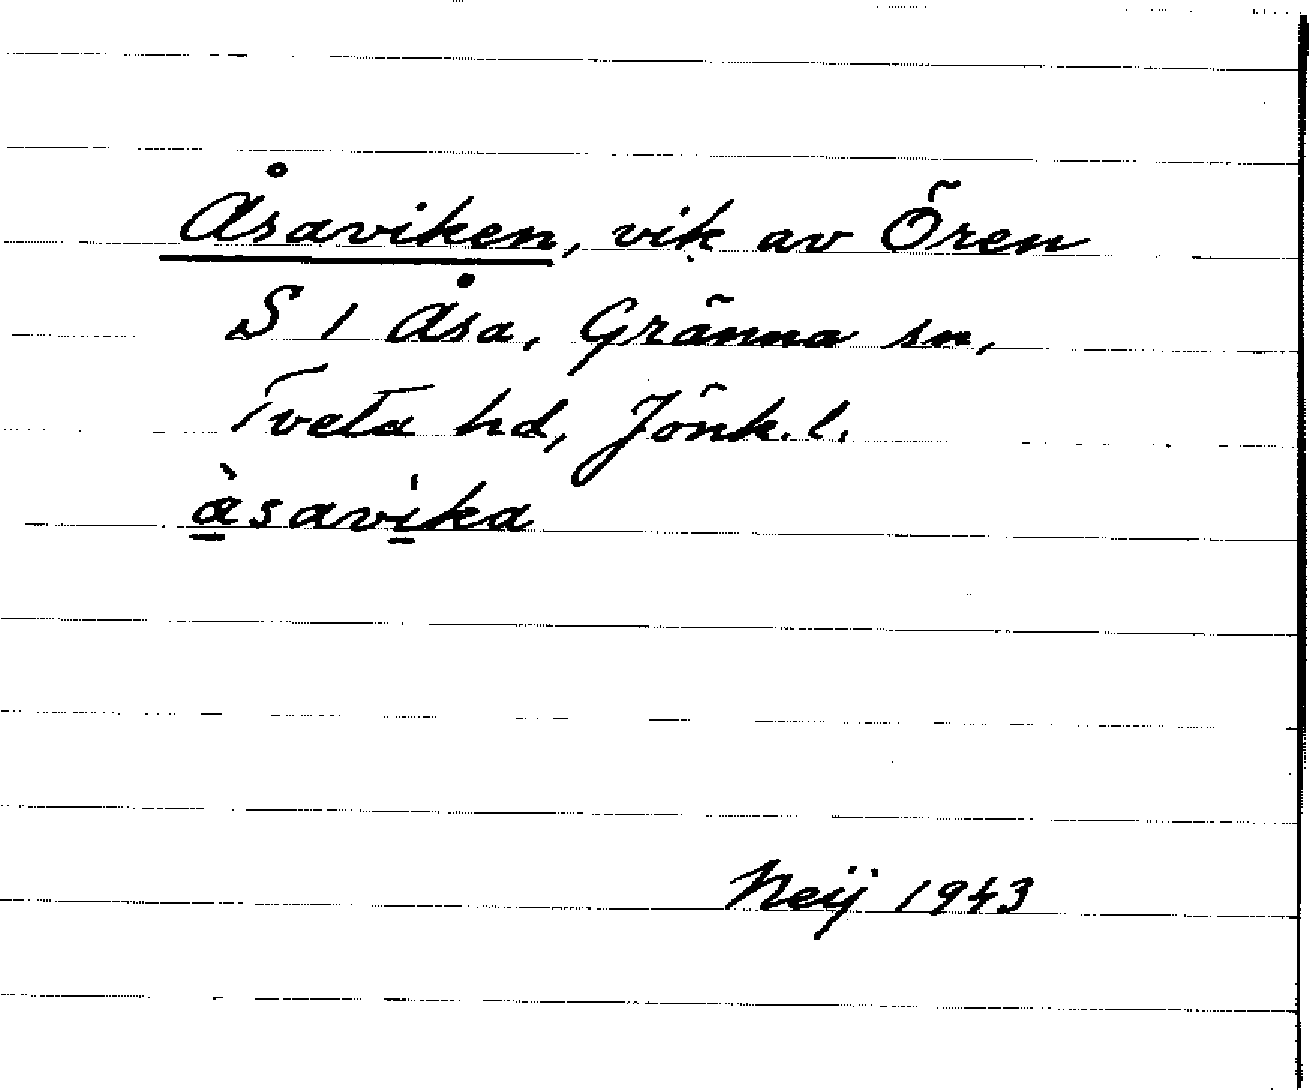 Åsaviken, vik av Ören
S / Åsa, Gränna sn,
Tveta hd, Jönk. l.
åsavika
Neij 1943